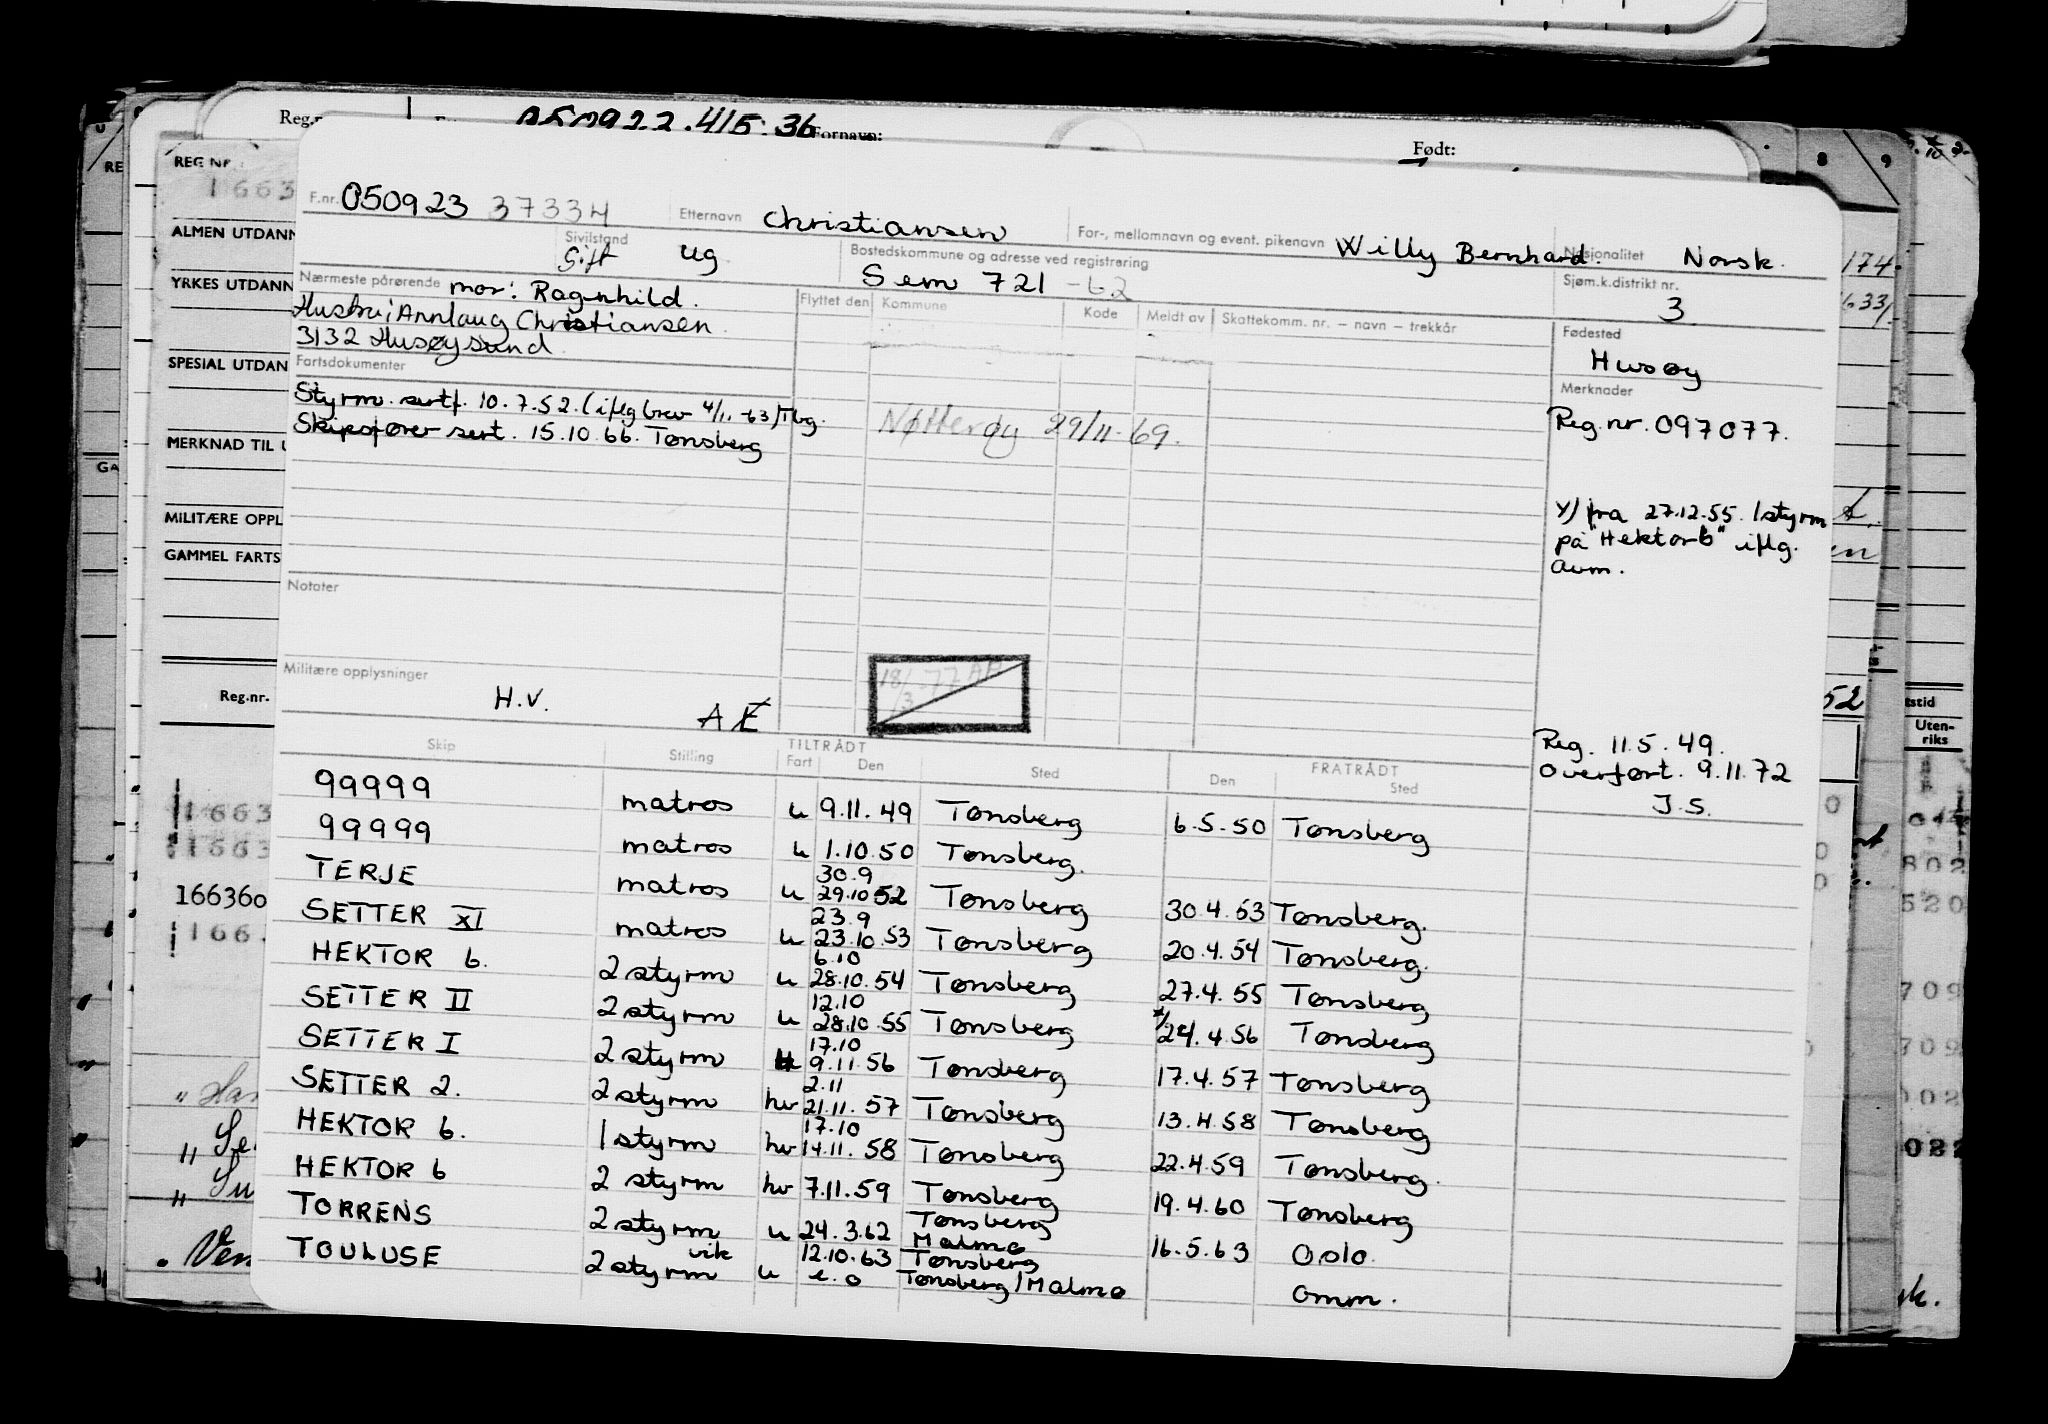 Reg.n
050922.415.36
Fornavn:
Født:
8 9
REG NR.
1663
F.nr. 050923 37334
Etternavn Christiansen
For-, mellomnavn og event. pikenavn Willy Bernhard.
Nasjonalitet Norsk.
174
ALMEN UTDANN
Sivilstand Gift ug
Bostedskommune og adresse ved registrering
Sem 721 -62
Sjøm.k.distrikt nr.
3
633/.
YRKES UTDANN
Nærmeste pårørende mor: Ragnhild.
Hustru: Annlaug Christiansen
3132 Husøysund
Flyttet den Kommune Kode Meldt av Skattekomm. nr. – navn – trekkår
Fødested
Husøy
SPESIAL UTDAN
Fartsdokumenter
Styrm. sertf. 10.7.52. (iflg brev 4/11-63/Tbg.
Skipsfører sert. 15.10.66. Tønsberg
Nøtterøy 29/11-69.
Merknader
Reg.nr. 097077.
MERKNAD TIL U
GA
MILITÆRE OPPL
GAMMEL FARTS
Y) fra 27.12.55. 1styrm
på "Hektor 6" iflg.
avm.
Notater
Militære opplysninger
H.V.
AÆ
18/3-77 AH
52
Reg.nr.
tstid
Uten-
riks
Reg. 11.5.49.
Overført. 9.11.72
J.S.
Skip Stilling TILTRÅDT Fart Den Sted FRATRÅDT Den Sted
99999 matros u 9.11.49 Tønsberg 6.5.50 Tønsberg
99999 matros u 1.10.50 Tønsberg.
TERJE matros u 30.9 29.10 52 Tønsberg 30.4.53 Tønsberg.
SETTER XI matros u 23.9 23.10.53 Tønsberg 20.4.54 Tønsberg.
HEKTOR 6. 2 styrm u 6.10 28.10.54 Tønsberg 27.4.55 Tønsberg
SETTER II 2 styrm u 12.10 28.10.55 Tønsberg 24.4.56 Tønsberg
SETTER I 2 styrm 17.10 9.11.56 Tønsberg 17.4.57 Tønsberg
SETTER 2. 2 styrm hv 2.11 21.11.57 Tønsberg 13.4.58 Tønsberg
HEKTOR 6. 1 styrm hv 17.10 14.11.58 Tønsberg 22.4.59 Tønsberg.
HEKTOR 6 2 styrm hv 7.11.59 Tønsberg 19.4.60 Tønsberg
TORRENS 2 styrm u 24.3.62 Tønsberg Malmø 16.5.63 Oslo.
TOULUSE 2 styrm vik u 12.10.63 e.o Tønsberg Tønsberg/Malmø omm.
1663
1663
166360
1663
802
520
709
709
022
" Se
" Su
" Ven